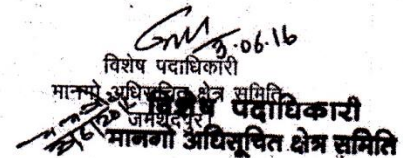 3.06.16
विशेष पदाधिकारी
मानगो अधिसूचित क्षेत्र समिति
जमशेदपुर।
विशेष पदाधिकारी
मानगो अधिसूचित क्षेत्र समिति